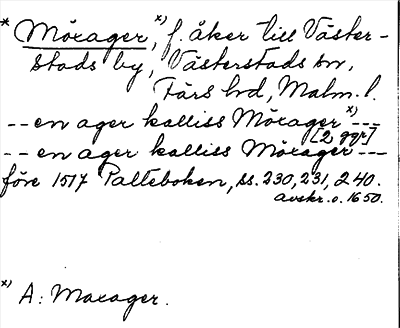 * Mörager,ˣ⁾ f. åker till Väster-
stads by, Västerstads sn,
Färs hd, Malm. l.
-- en ager kalliss Mörager ˣ⁾---
[2 ggr]
-- en ager kalliss Mörager ---
före 1517 Palteboken, ss. 230, 231, 240.
avskr. o. 1650.
ˣ⁾ A: Maxager.